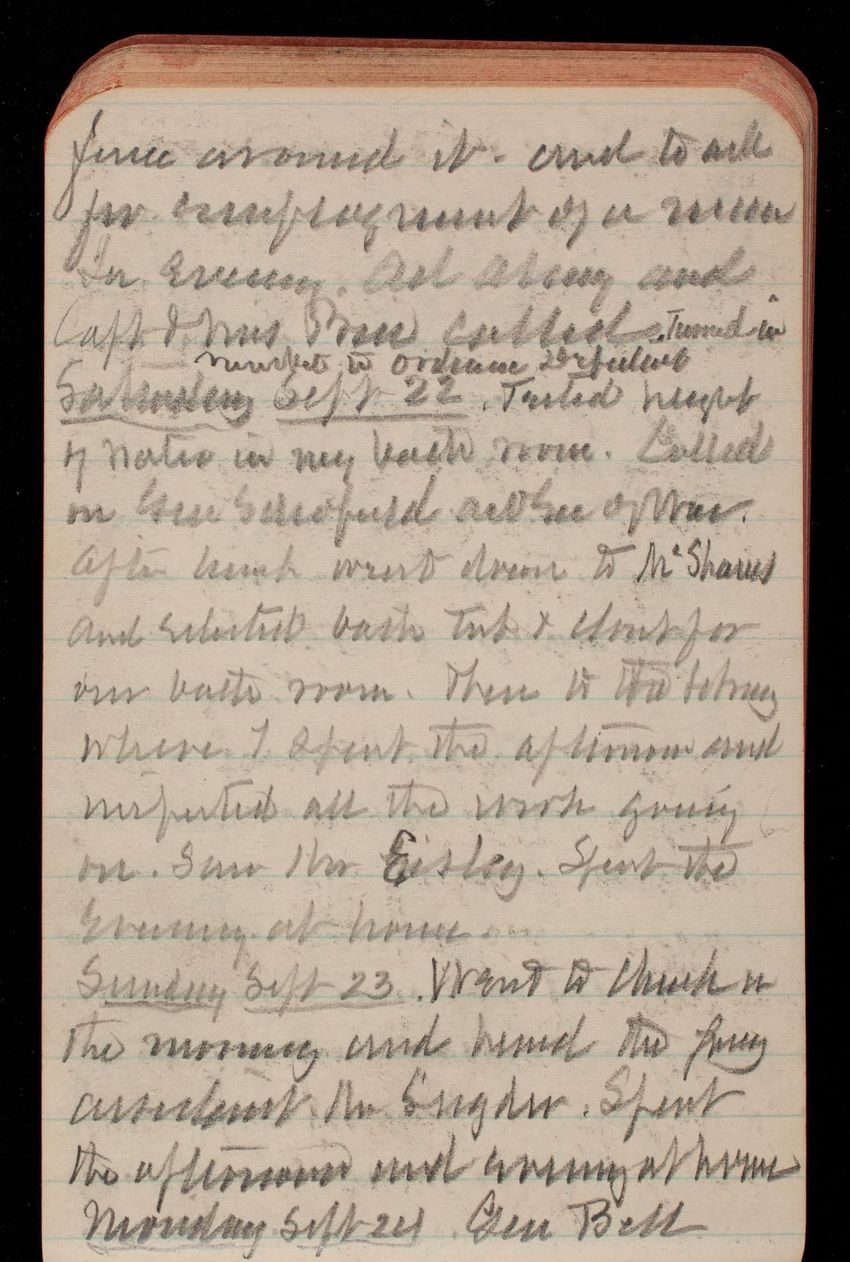 fence around it - and to ask
for employment of a man
In Evening. Col and
Capt & Mrs called. Turned in
to Ordnance Department
Saturday Sept 22. Tested height
of water in my bath room. Called
on Gen Schofield act Sec of War.
After lunch went down to McShanes
and selected bath tub & closet for
our bath room. Then to the library
where I spent the afternoon and
inspected all the work going
on. Saw Mr Eisley. Spent the
Evening at home.
Sunday Sept 23. Went to church in
the morning and heard the
assistant Mr Snyder. Spent
the afternoon and evening at home
Monday Sept 24 Gen Bell